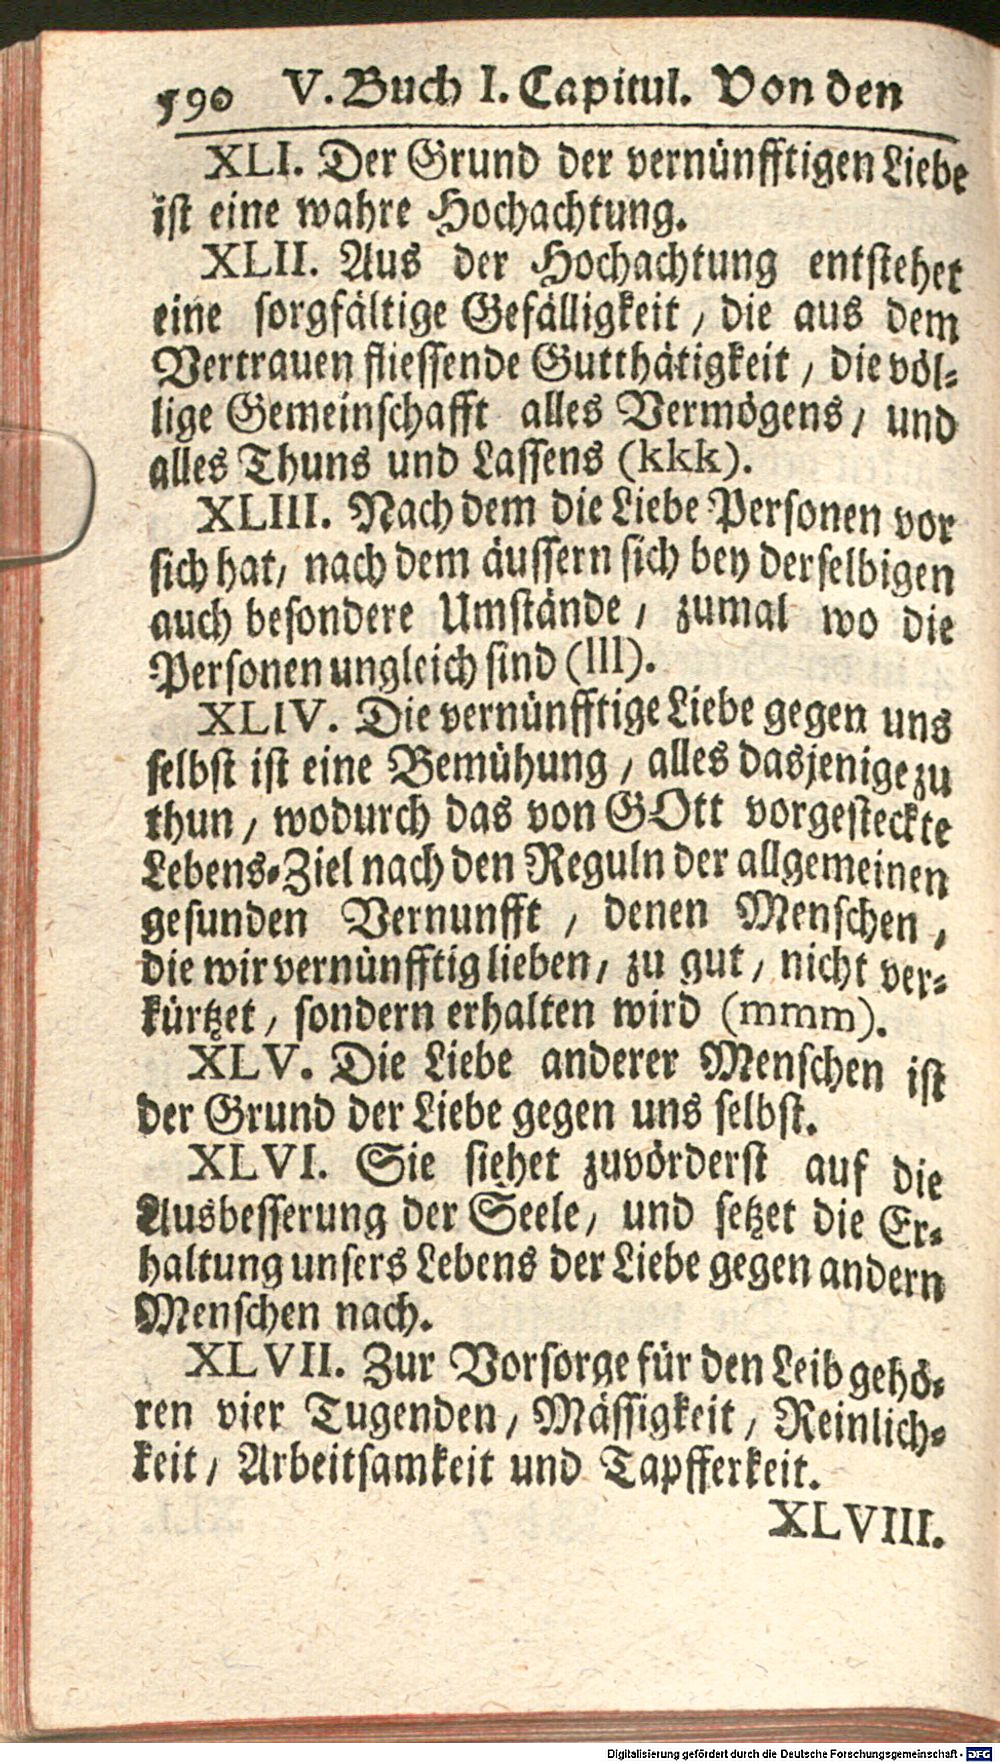 590 V. Buch I. Capitul. Von den
XLI. Der Grund der vernünfftigen Liebe
ist eine wahre Hochachtung.
XLII. Aus der Hochachtung entstehet
eine sorgfältige Gefälligkeit, die aus dem
Vertrauen fliessende Gutthätigkeit, die völ-
lige Gemeinschafft alles Vermögens, und
alles Thuns und Lassens (kkk).
XLIII. Nach dem die Liebe Personen vor
sich hat, nach dem äussern sich bey derselbigen
auch besondere Umstände, zumal wo die
Personen ungleich sind (lll).
XLIV. Die vernünfftige Liebe gegen uns
selbst ist eine Bemühung, alles dasjenige zu
thun, wodurch das von GOtt vorgesteckte
Lebens-Ziel nach den Reguln der allgemeinen
gesunden Vernunfft, denen Menschen,
die wir vernünfftig lieben, zu gut, nicht ver-
kürtzet, sondern erhalten wird (mmm).
XLV. Die Liebe anderer Menschen ist
der Grund der Liebe gegen uns selbst.
XLVI. Sie siehet zuvörderst auf die
Ausbesserung der Seele, und setzet die Er-
haltung unsers Lebens der Liebe gegen andern
Menschen nach.
XLVII. Zur Vorsorge für den Leib gehö-
ren vier Tugenden, Mässigkeit, Reinlich-
keit, Arbeitsamkeit und Tapfferkeit.
XLVIII.
Digitalisierung gefördert durch die Deutsche Forschungsgemeinschaft - DFG